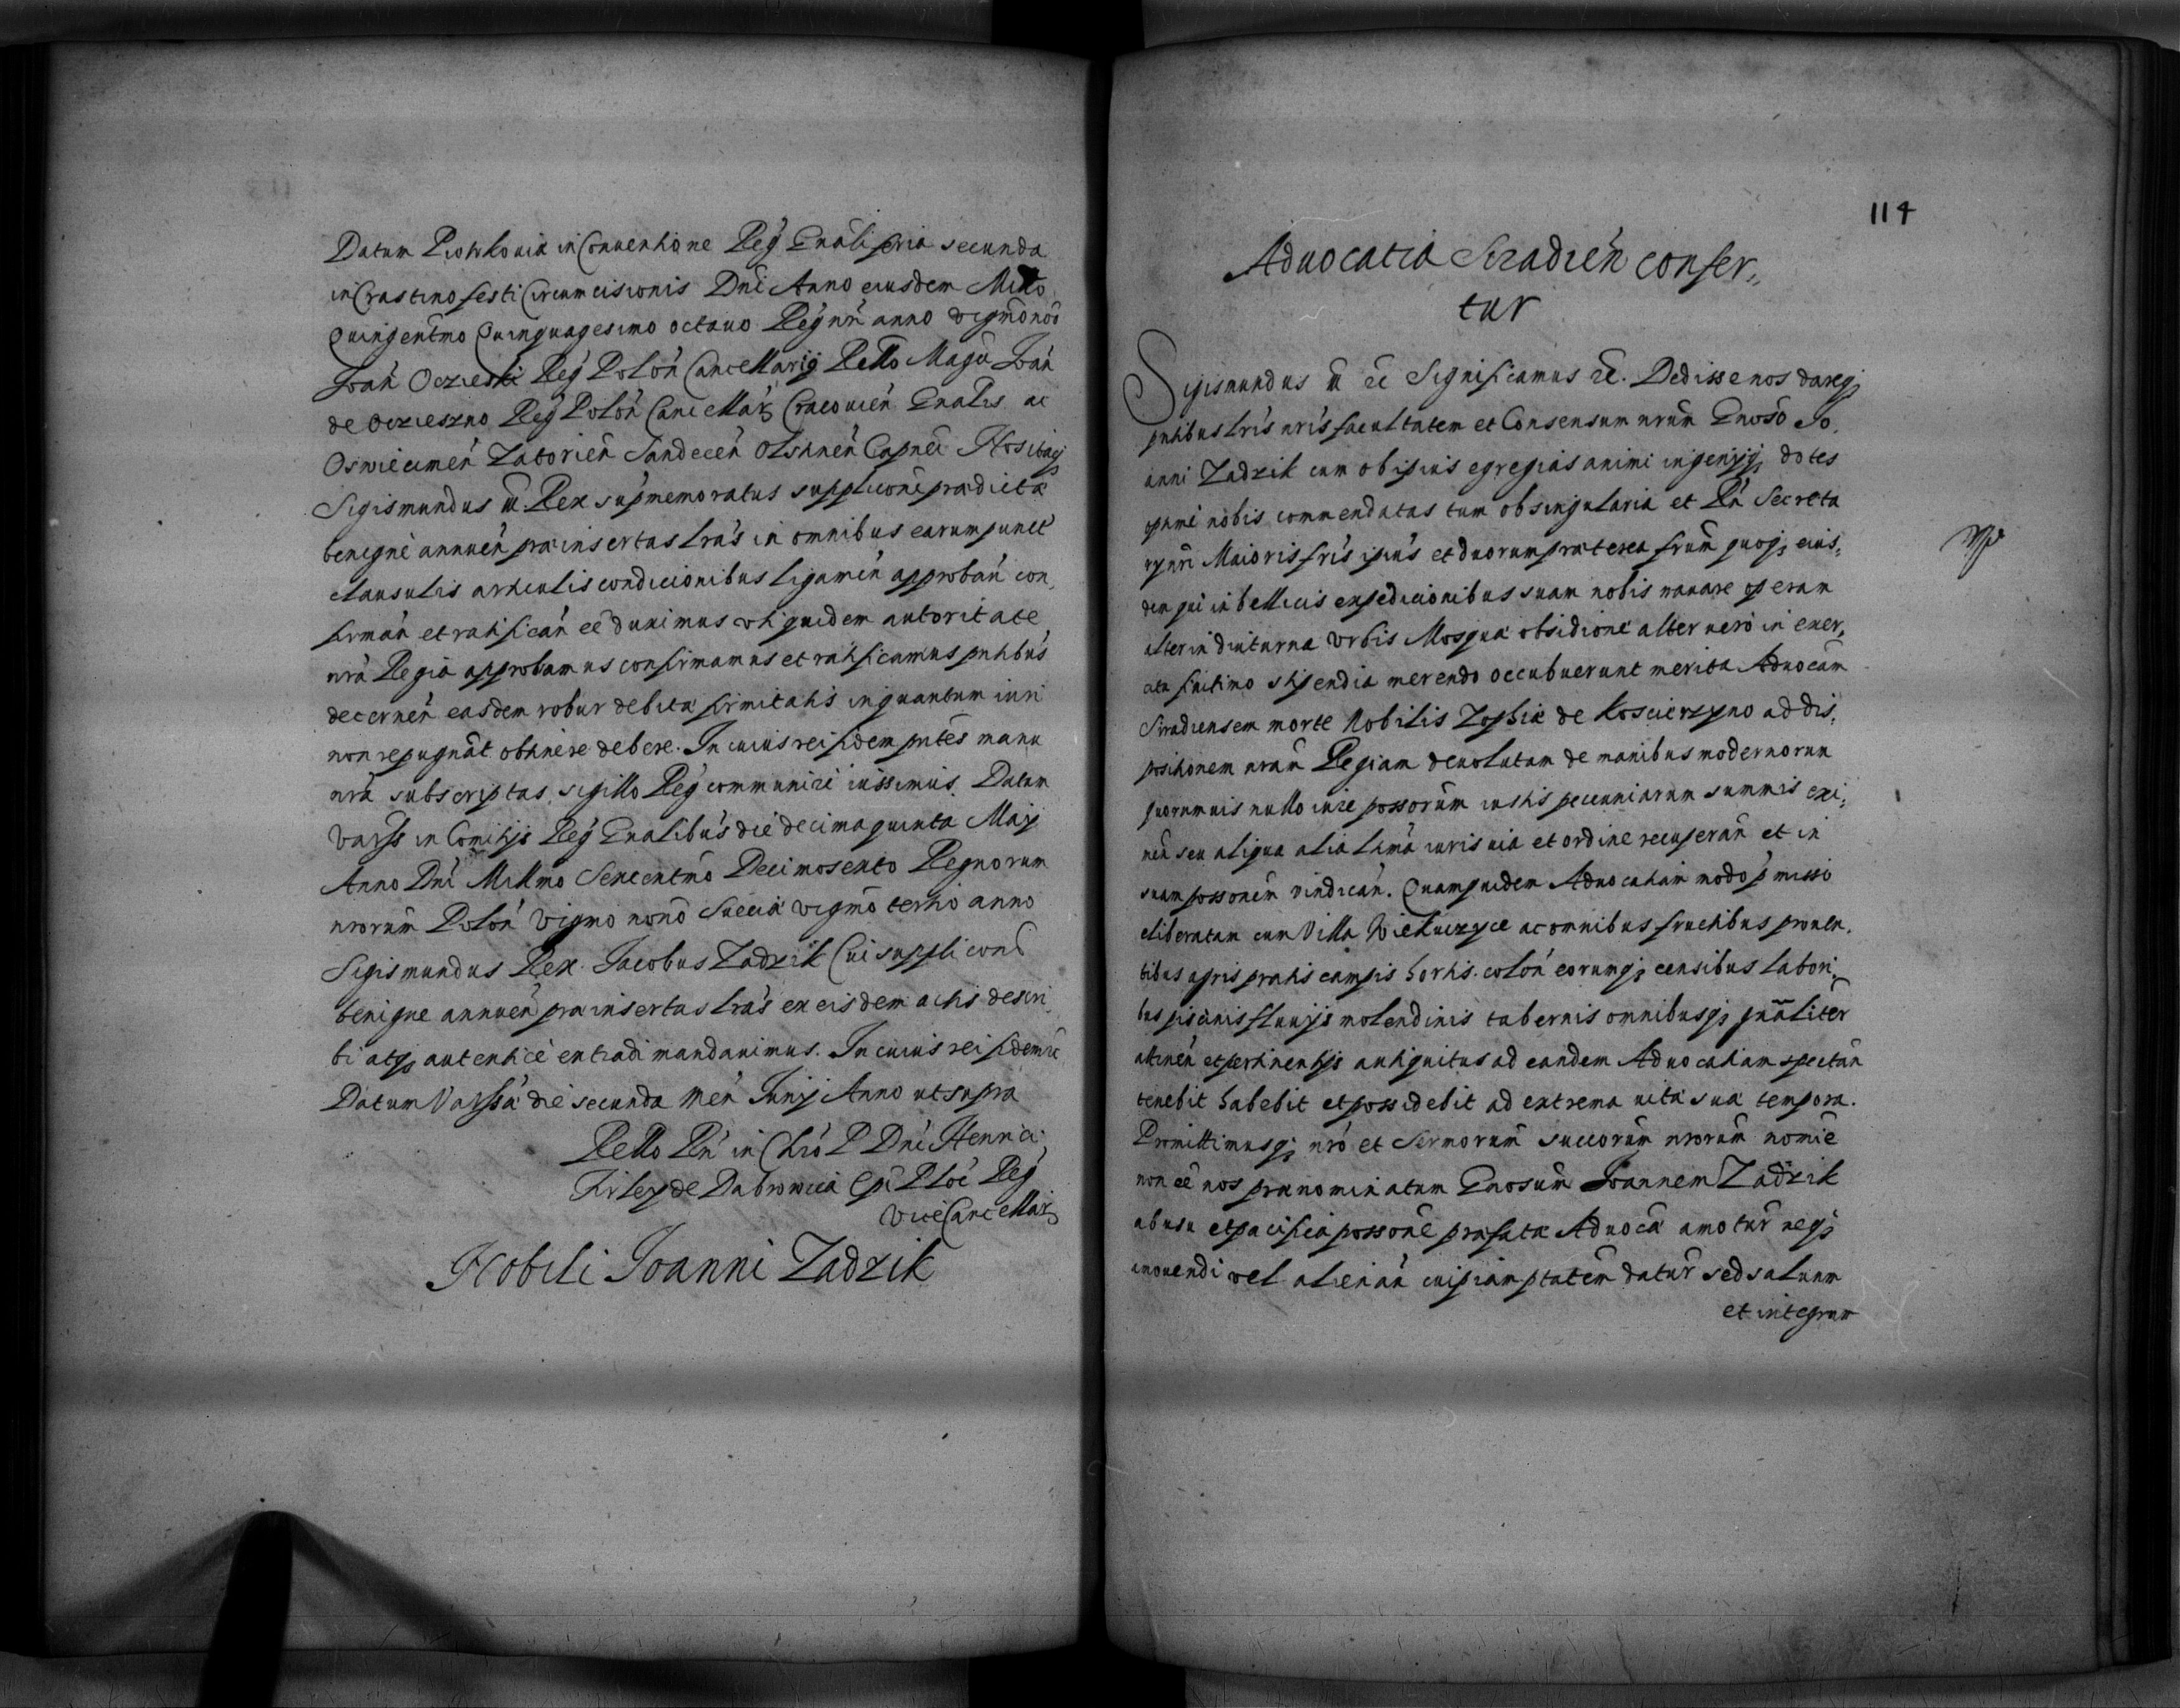 Datum Piotrkouiæ in Conuentione Regⁿ Gnâli feria secunda
in Crastino festi Circumcisionis Dnî Anno eiusdem Millo
Quingentmo Quinquagesimo octauo Regⁿ nri anno vigmo nono
Joan Oczieski Reg Polon Cancellarig Rello Magci Joan
de Oczieszno Reg Polon Cancellar Cracouien Gnalis ac
Oswiecimen Zatorien Sandecen Olstinen Capnei Nos itaq
Sigismundus III Rex supmemoratus supplicone prædicta
benigne annuen præinsertas lras in omnibus earum punct
clausulis articulis condicionibus ligamen approban con
firman et ratifican eê duximus vti quidem autoritate
nra Regia approbamus confirmamus et ratificamus pntibus
decernen easdem robur debitæ firmitatis inquantum iuri
non repugnat obtinere debere. In cuius rei fidem pntes manu
nra subscriptas sigillo Reg communire iussimus. Datum
Varss in Comitijs Reg Gnalibus die decima quinta Maij
Anno Dni Millmo Sexcentmo Decimosexto Regnorum
nrorum Polon Vigmo nono Sueciæ vigmo tertio anno
Sigismundus Rex. Jacobus Zadzik Cui supplicone
benigne annuen præinsertas lras ex eisdem actis descri
bi atq autentice extradi mandauimus. In cuius rei fidem etc
Datum Varssa die secunda Men Junij Anno ut supra
Rello Rn in Chro P Dni Henrici
Firley de Dabrowica Epi Ploc Reg
ViceCancellar
Nobili Joanni Zadzik
114
Aduocatia Siradien confer,,
tur
Sigismundus III etc Significamus etc. Dedisse nos dareq
pntibus lris nris facultatem et Consensum nrum Gnoso Jo,
anni Zadzik cum ob ipius egregias animi ingenijq dotes
optime nobis commendatas tum ob singularia et Rn Secreta
rij nri Maioris fris ipius et duorum præterea frum quoq eius,
dem qui in bellicis expedicionibus suam nobis nauare operam
alter in diuturna vrbis Mosquæ obsidione alter vero in exer,
citu finitimo stipendia merendo occubuerunt merita Aduocam
Siradiensem morte Nobilis Zophiæ de Koscierzyno ad dis,
positionem nram Regiam deuolutam de manibus modernorum
quorumuis nullo iure possorum iustis pecuniarum summis exi,
men seu aliqua alia ltima iuris via et ordine recuperan et in
suam possonem vindican. Quamquidem Aduocatiam modo pmisso
eliberatam cum Villa Wiechuczyce ac omnibus fructibus prouen,
tibus agris pratis campis hortis colon eorumq censibus labori,
bus piscinis fluuijs molendinis tabernis omnibusq gnaliter
attinen et pertinentijs antiquitus ad eandem Aduocatiam spectan
tenebit habebit et possidebit ad extrema vitæ suæ tempora.
Promittimusq nro et Sermorum succorum nrorum nomie
non eê nos prænominatum Gnosum Joannem Zadzik
ab usu et pacifica possone præfatæ Aduocæ amotur neq
amouendi vel alienan cuipiam ptatem datur sed saluum
et integrum